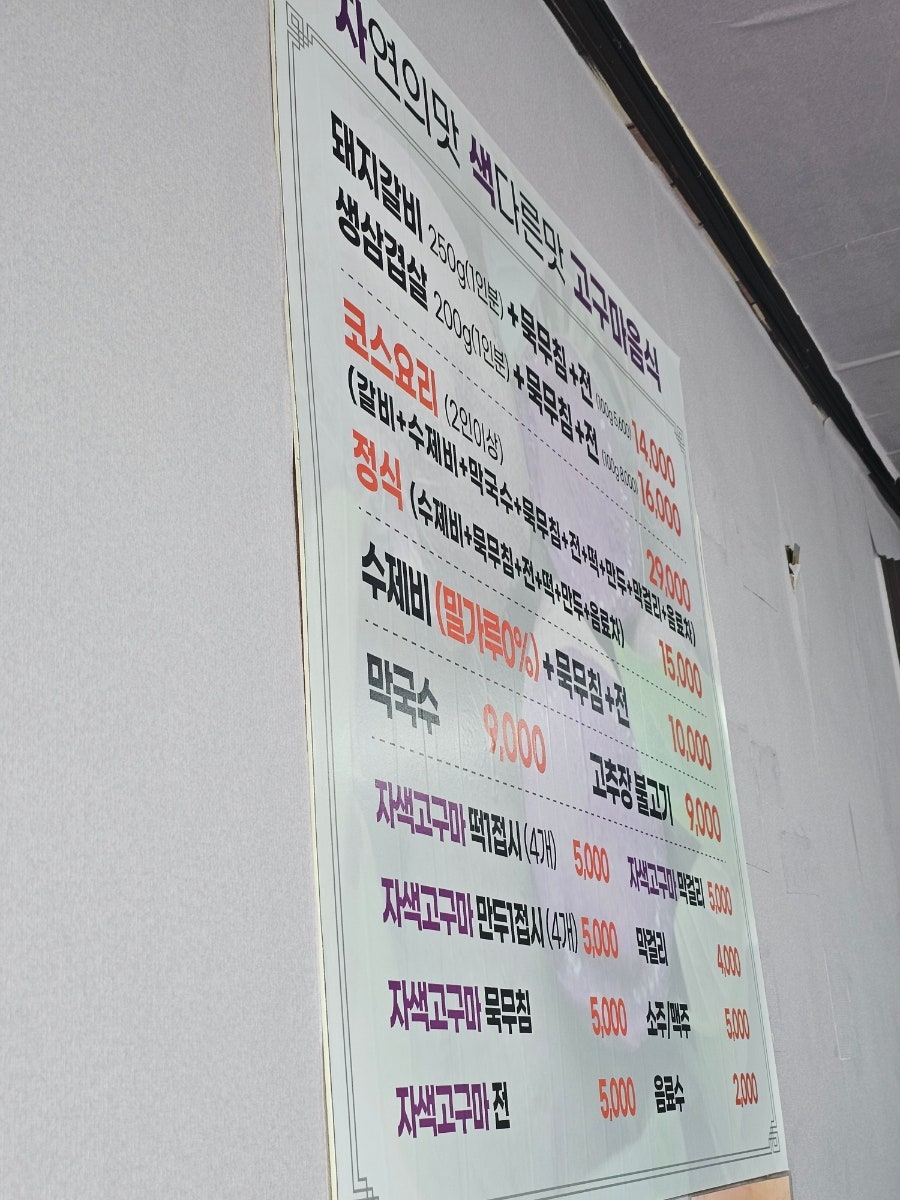 자연의맛 색다른맛 고구마음식
돼지갈비 250g(1인분) +묵무침+전 (100g 5,600) 14,000
생삼겹살 200g(1인분) +묵무침+전 (100g 8,000) 16,000
코스요리 (2인이상) 29,000
(갈비+수제비+막국수+묵무침+전+떡+만두+막걸리+음료차)
정식 (수제비+묵무침+전+떡+만두+음료차) 15,000
수제비 (밀가루0%) +묵무침+전 10,000
막국수 9,000 고추장 불고기 9,000
자색고구마 떡1접시 (4개) 5,000 자색고구마 막걸리 5,000
자색고구마 만두1접시 (4개) 5,000 막걸리 4,000
자색고구마 묵무침 5,000 소주/맥주 5,000
자색고구마 전 5,000 음료수 2,000